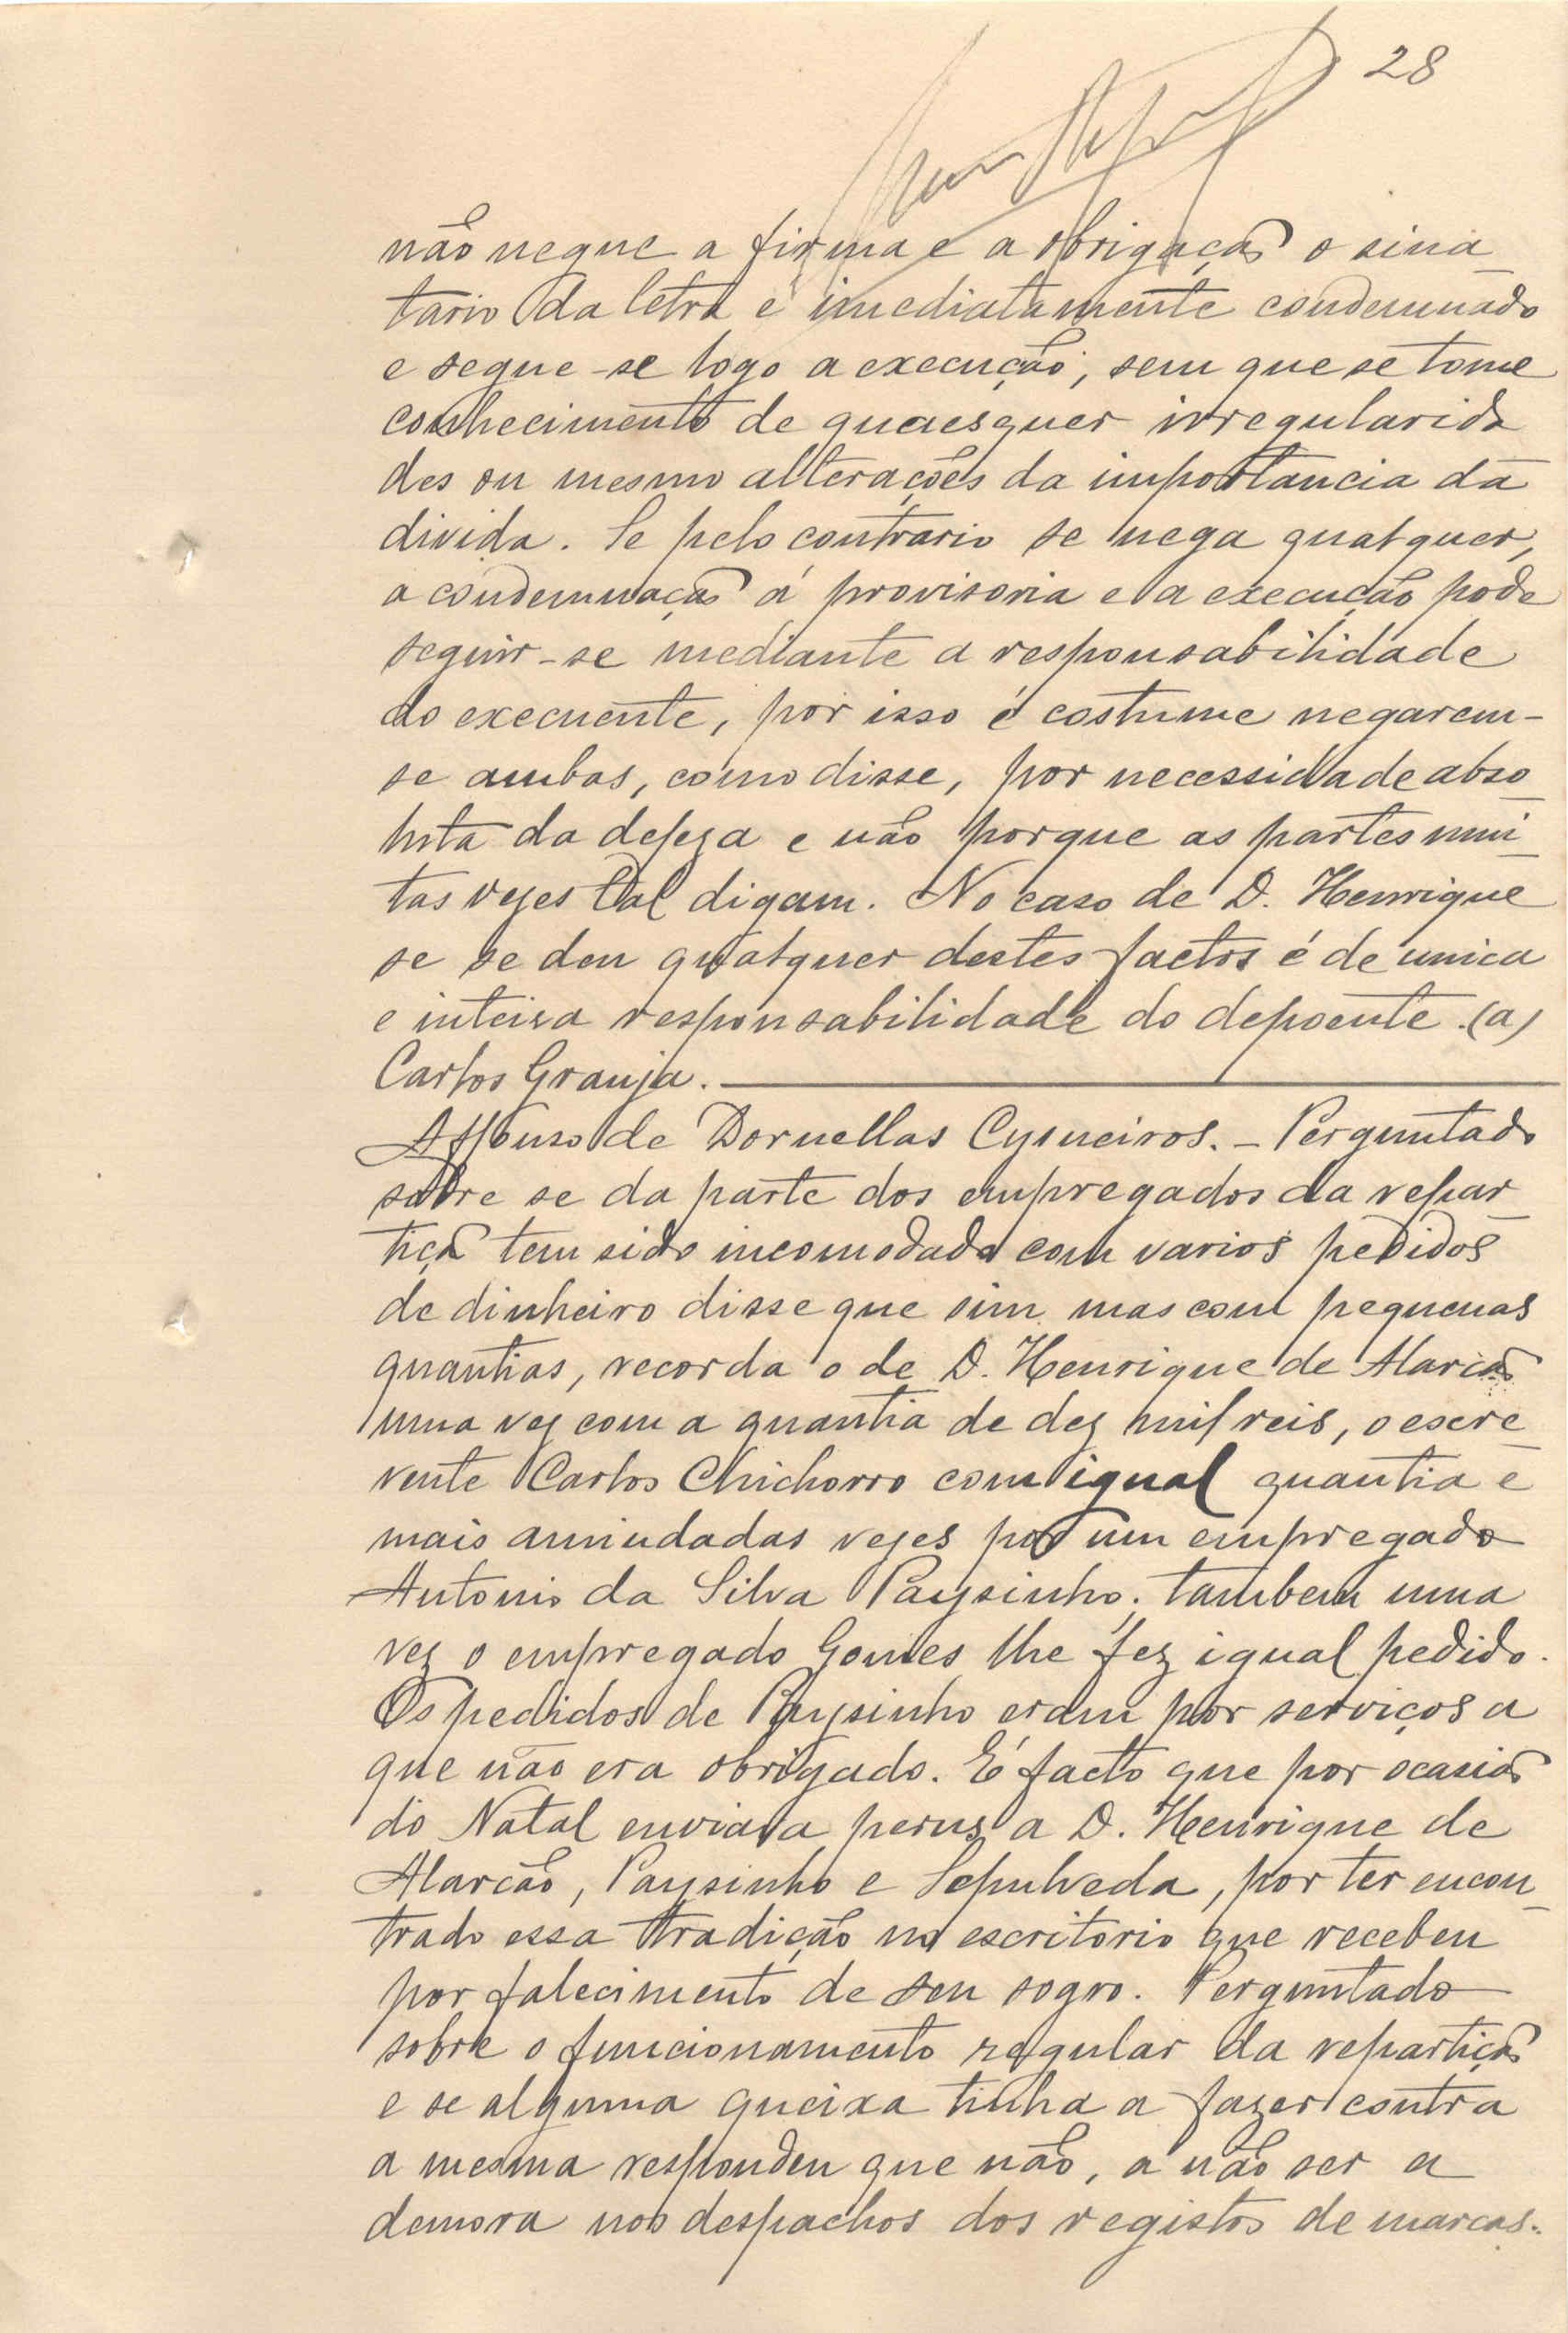 28
não negue a firma e a obrigação o sina
tario da letra é imediatamente condemnado
e segue-se logo a execução, sem que se tome
conhecimento de quaesquer irregularida
des ou mesmo alterações da importancia da
divida. Se pelo contrario se nega qualquer,
a condemnação é provisoria e a execução pode
seguir-se mediante a responsabilidade
do execuente, por isso é costume negarem-
se ambas, como disse, por necessidade abso
luta da defeza e não porque as partes mui
tas vezes tal digam. No caso de D. Henrique
se se deu qualquer destes factos é de unica
e inteira responsabilidade do depoente. (a)
Carlos Granja.
Affonso de Dornellas Cysneiros. - Perguntado
sobre se da parte dos empregados da repar
tição tem sido incomodado com varios pedidos
de dinheiro disse que sim mas com pequenas
quantias, recorda o de D. Henrique de Alarcão
uma vez com a quantia de dez mil reis, o escre
vente Carlos Chichorro com igual quantia e
mais amiudadas vezes por um empregado
Antonio da Silva Paysinho; tambem uma
vez o empregado Gomes lhe fez igual pedido.
Os pedidos de Paysinho eram por serviços a
que não era obrigado. É facto que por ocasião
do Natal enviava perus a D. Henrique de
Alarcão, Paysinho e Sepulveda, por ter encon
trado essa tradição no escritorio que recebeu
por falecimento de seu sogro. Perguntado
sobre o funcionamento regular da repartição
e se alguma queixa tinha a fazer contra
a mesma respondeu que não, a não ser a
demora nos despachos dos registos de marcas.